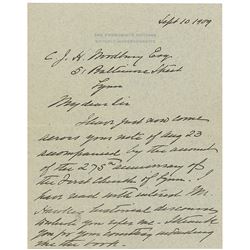 Sept 10. 1909
C. J. H. Woodbury Esq.
51 Baltimore Street
Lynn
My dear Sir
I have just now come
across your note of Aug 23
accompanied by the account
of the 275th anniversary of
the First Church of Lynn. I
have read with interest Mr.
historical discourse
which you I thank
you for your courtesy in sending
me the book.